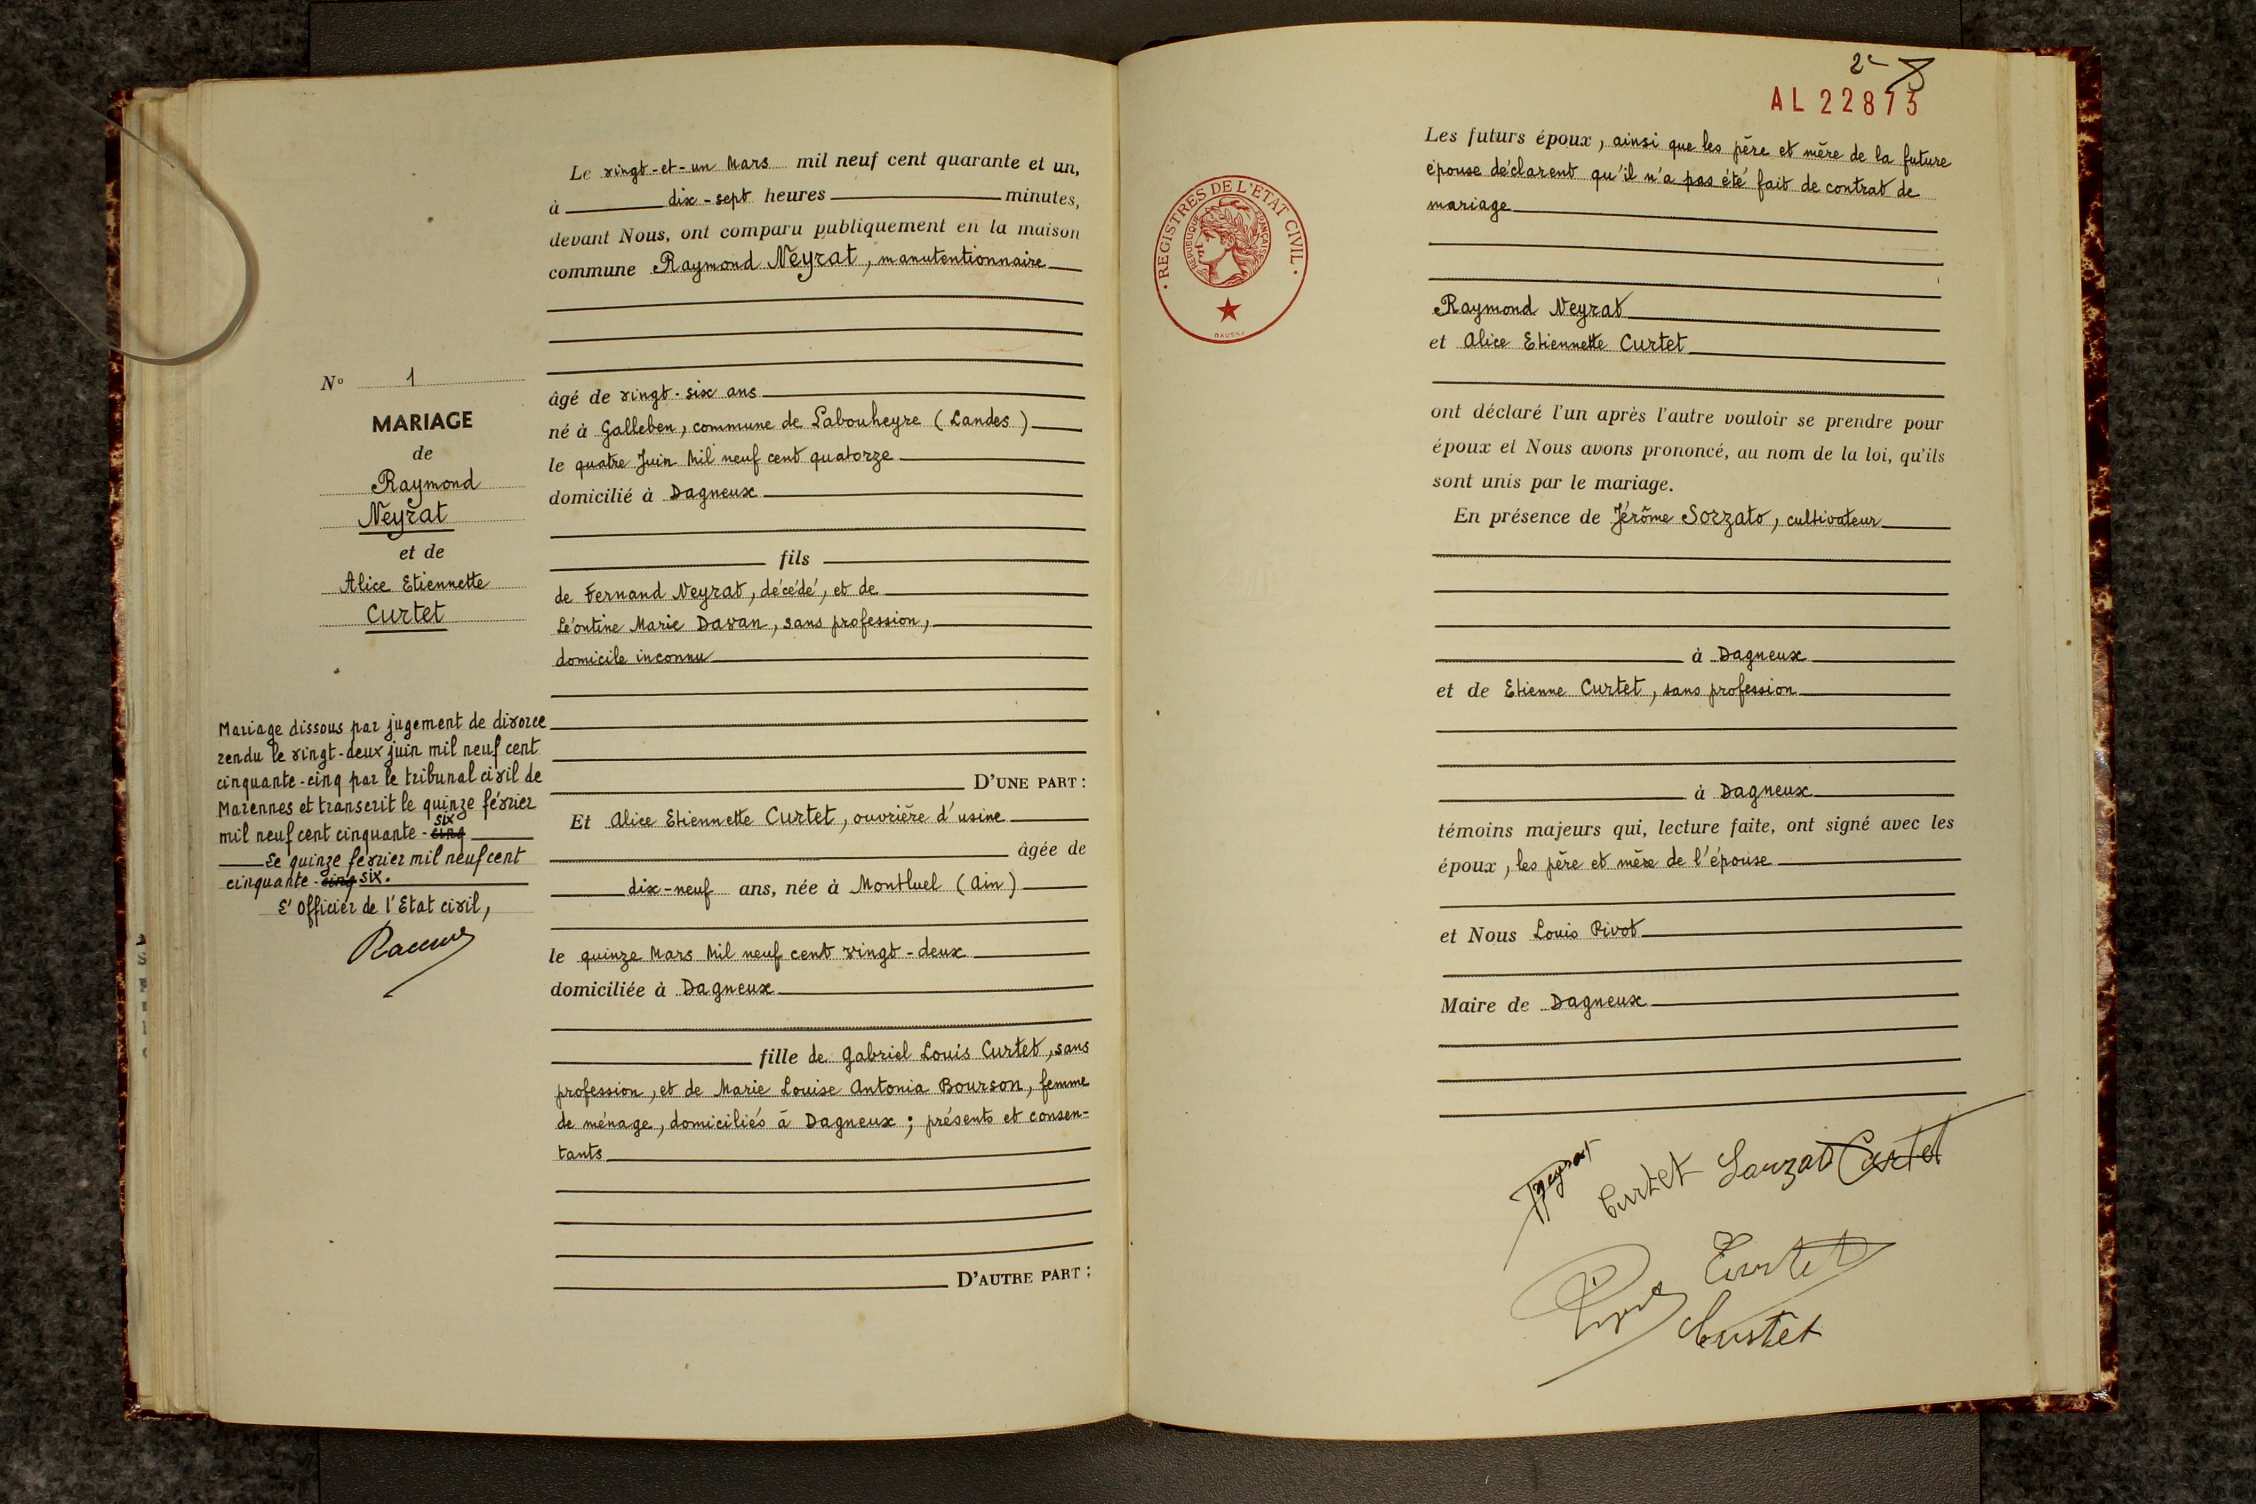 N° 1
MARIAGE
de
Raymond
Neyrat
et de
Alice Etiennette
Curtet
Mariage dissous par jugement de divorce
rendu le vingt-deux juin mil neuf cent
cinquante-cinq par le tribunal civil de
Marennes et transcrit le quinze février
six
mil neuf cent cinquante-cinq
Le quinze février mil neuf cent
cinquante-cinq six.
L'Officier de l'Etat civil,
Le vingt-et-un Mars mil neuf cent quarante et un,
à dix-sept heures minutes,
devant Nous, ont comparu publiquement en la maison
commune Raymond Neyrat, manutentionnaire
âgé de vingt-six ans
né à Galleben, commune de Labouheyre (Landes)
le quatre Juin Mil neuf cent quatorze
domicilié à Dagneux
fils
de Fernand Neyrat, décédé, et de
Léontine Marie Davan, sans profession,
domicile inconnu
D'UNE PART :
Et Alice Etiennette Curtet, ouvrière d'usine
âgée de
dix-neuf ans, née à Montluel (Ain)
le quinze Mars Mil neuf cent vingt-deux
domiciliée à Dagneux
fille de Gabriel Louis Curtet, sans
profession, et de Marie Louise Antonia Bourson, femme
de ménage, domiciliés à Dagneux ; présents et consen-
tants
D'AUTRE PART :
REGISTRES DE L'ETAT CIVIL
REPUBLIQUE FRANÇAISE
AL 22873
Les futurs époux, ainsi que les père et mère de la future
épouse déclarent qu'il n'a pas été fait de contrat de
mariage
Raymond Neyrat
et Alice Etiennette Curtet
ont déclaré l'un après l'autre vouloir se prendre pour
époux et Nous avons prononcé, au nom de la loi, qu'ils
sont unis par le mariage.
En présence de Jérôme Sorzato, cultivateur
à Dagneux
et de Etienne Curtet, sans profession
à Dagneux
témoins majeurs qui, lecture faite, ont signé avec les
époux, les père et mère de l'épouse
et Nous Louis Pivot
Maire de Dagneux
Neyrat Curtet Sorzato Curtet
Curtet
Curtet